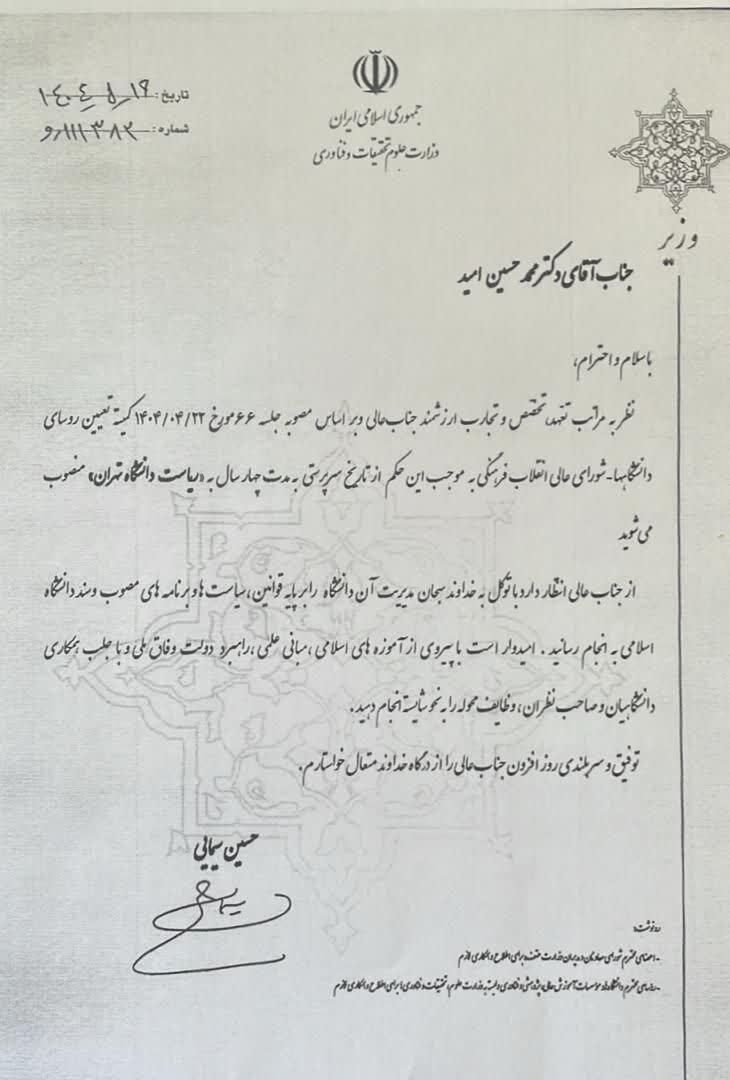 جمهوری اسلامی ایران
وزارت علوم تحقیقات و فناوری
تاریخ: ۱۴۰۴ر۵ر۱۶
شماره: ۱۱۱۳۸۲ر و
وزیر
جناب آقای دکتر محمد حسین امید
با سلام و احترام،
نظر به مراتب تعهد، تخصص و تجارب ارزشمند جناب‌عالی وبر اساس مصوبه جلسه ۶۶ مورخ ۱۴۰۴/۰۴/۲۲ کمیته تعیین روسای
دانشگاهها-شورای عالی انقلاب فرهنگی به موجب این حکم از تاریخ سرپرستی به مدت چهار سال به «ریاست دانشگاه تهران» منصوب
می شوید
از جناب عالی انتظار دارد با توکل به خداوند سبحان مدیریت آن دانشگاه را بر پایه قوانین، سیاست ها و برنامه های مصوب وسند دانشگاه
اسلامی به انجام رسانید . امیدوار است با پیروی از آموزه های اسلامی ،مبانی علمی ،راهبرد دولت وفاق ملی و با جلب همکاری
دانشگاهیان و صاحب نظران، وظایف محوله را به نحو شایسته انجام دهید.
توفیق و سربلندی روز افزون جناب عالی را از درگاه خداوند متعال خواستارم.
حسین سیمایی
رونوشت:
-اعضای محترم شورای معاونان و مدیران وزارت متبوع برای اطلاع و همکاری لازم
-روسای محترم دانشگاه‌ها، موسسات آموزش عالی، پژوهشی و فناوری وابسته به وزارت علوم، تحقیقات و فناوری برای اطلاع و همکاری لازم